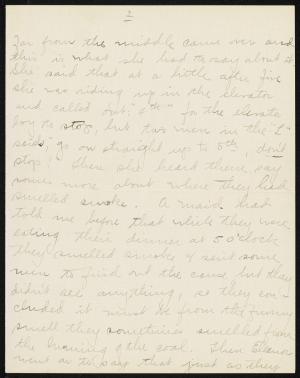 2
far from the middle came over and
this is what she had to say about it.
She said that at a little after five
she was riding up in the elevator
and called out "4th" for the elevator
boy to stop, but two men in the "L"
said, "go on straight up to 5th, don't
stop! Then she heard them say
some more about where they had
smelled smoke. A maid had
told me before that while they were
eating their dinner at 5 o'clock
they smelled smoke & sent some
men to find out the cause but they
didn't see anything, so they con-
cluded it must be from the funny
smell they sometimes smelled from
the burning of the coal. Then Eleanor
went on to say that just as they